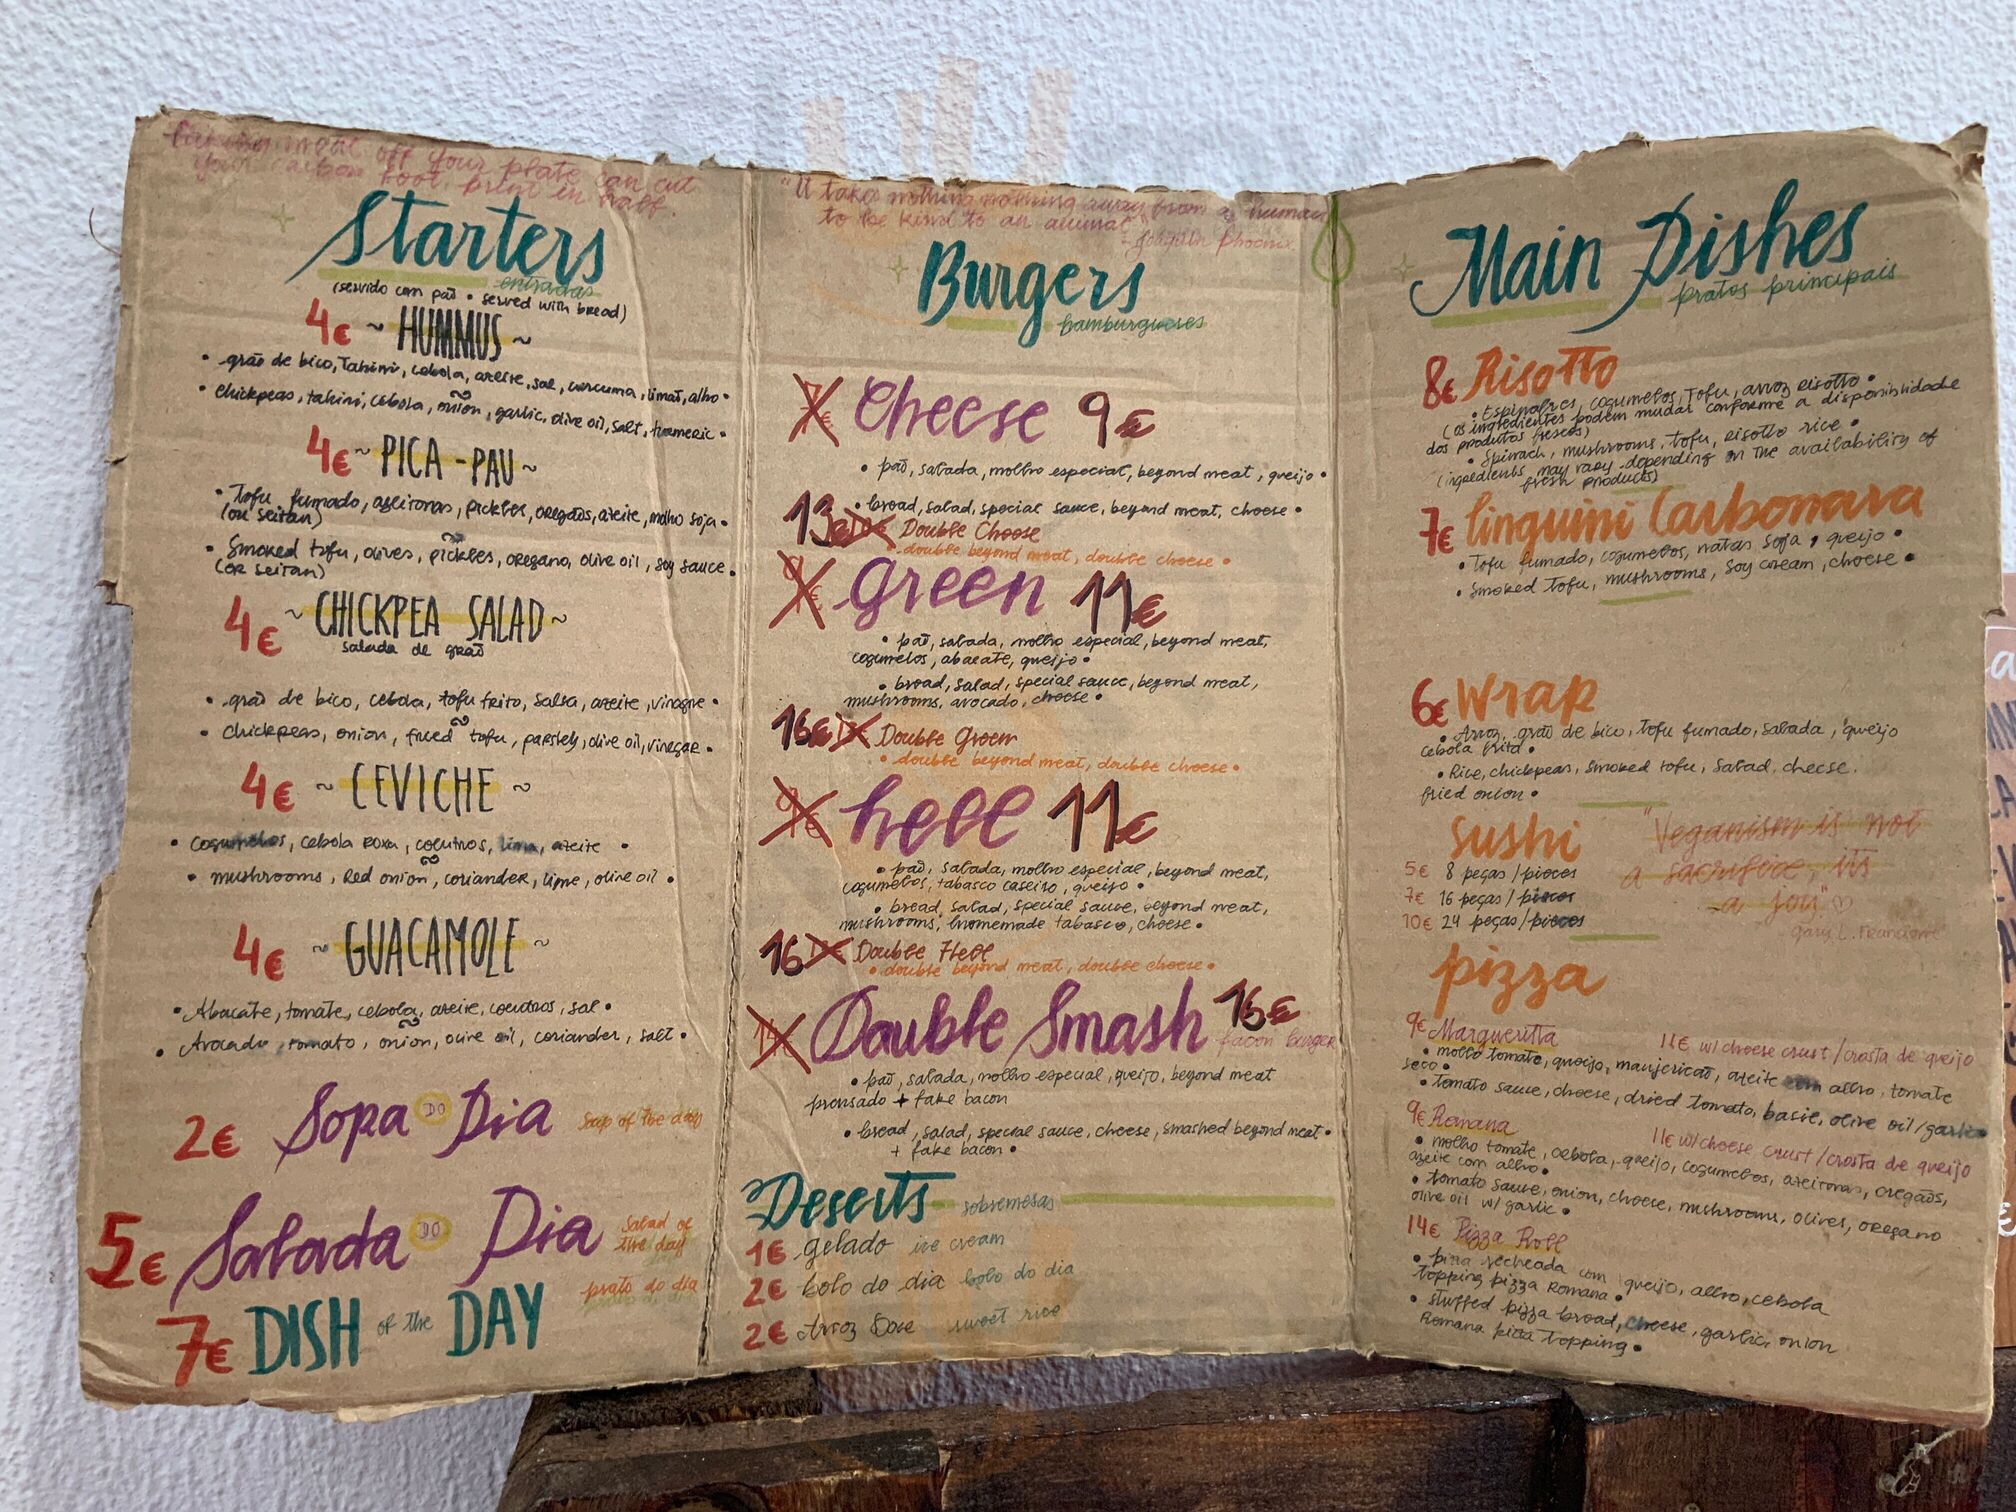 meat off your plate can cut
your carbon foot print in half.
Starters
entradas
(servido com pão • served with bread)
4€ ~ HUMMUS ~
• grão de bico, tahini, cebola, azeite, sal, curcuma, limão, alho •
• chickpeas, tahini, cebola, onion, garlic, olive oil, salt, turmeric •
4€ ~ PICA-PAU ~
• Tofu fumado, azeitonas, pickles, oregãos, azeite, molho soja •
(ou seitan)
• Smoked tofu, olives, pickles, oregano, olive oil, soy sauce •
(or seitan)
4€ ~ CHICKPEA SALAD ~
salada de grão
• grão de bico, cebola, tofu frito, salsa, azeite, vinagre •
• chickpeas, onion, fried tofu, parsley, olive oil, vinegar •
4€ ~ CEVICHE ~
• cogumelos, cebola roxa, coentros, lima, azeite •
• mushrooms, red onion, coriander, lime, olive oil •
4€ ~ GUACAMOLE ~
• Abacate, tomate, cebola, azeite, coentros, sal •
• Avocado, tomato, onion, olive oil, coriander, salt •
2€ Sopa DO Dia Soup of the day
5€ Salada DO Dia Salad of
the day
7€ DISH of the DAY prato do dia
"It takes nothing nothing away from a human
to be kind to an animal"
- Joaquin Phoenix
Burgers
hamburgueses
Cheese 9€
• pão, salada, molho especial, beyond meat, queijo •
• bread, salad, special sauce, beyond meat, cheese •
13€ Double Cheese
• double beyond meat, double cheese •
9€ green 11€
• pão, salada, molho especial, beyond meat,
cogumelos, abacate, queijo •
• bread, salad, special sauce, beyond meat,
mushrooms, avocado, cheese •
16€ Double Green
• double beyond meat, double cheese •
9€ hell 11€
• pão, salada, molho especial, beyond meat,
cogumelos, tabasco caseiro, queijo •
• bread, salad, special sauce, beyond meat,
mushrooms, homemade tabasco, cheese •
16 Double Hell
• double beyond meat, double cheese •
14€ Double Smash 16€
facon burger
• pão, salada, molho especial, queijo, beyond meat
prensado + fake bacon
• bread, salad, special sauce, cheese, smashed beyond meat •
+ fake bacon •
Deserts sobremesas
1€ gelado ice cream
2€ bolo do dia bolo do dia
2€ Arroz Doce sweet rice
Main Dishes
pratos principais
8€ Risotto
• Espinafres, cogumelos, Tofu, arroz risotto •
(os ingredientes podem mudar conforme a disponibilidade
dos produtos frescos)
• Spinach, mushrooms, tofu, risotto rice •
(ingredients may vary depending on the availability of
fresh products)
7€ linguini Carbonara
• Tofu fumado, cogumelos, natas soja, queijo •
• Smoked Tofu, mushrooms, soy cream, cheese •
6€ Wrap
• Arroz, grão de bico, tofu fumado, salada, queijo
cebola frita •
• Rice, chickpeas, smoked tofu, salad, cheese,
fried onion •
sushi
5€ 8 peças/pieces
7€ 16 peças/pieces
10€ 24 peças/pieces
"Veganism is not
a sacrifice, its
a joy" ♡
Gary L. Francione
pizza
9€ Margueritta 11€ w/cheese crust/crosta de queijo
• molho tomate, queijo, manjericão, azeite com alho, tomate
seco •
• tomato sauce, cheese, dried tomato, basil, olive oil/garlic •
9€ Romana 11€ w/cheese crust/crosta de queijo
• molho tomate, cebola, queijo, cogumelos, azeitonas, oregãos,
azeite com alho •
• tomato sauce, onion, cheese, mushrooms, olives, oregano
olive oil w/ garlic •
14€ Pizza Roll
• pizza recheada com queijo, alho, cebola
topping pizza Romana •
• stuffed pizza bread, cheese, garlic, onion
Romana pizza topping •